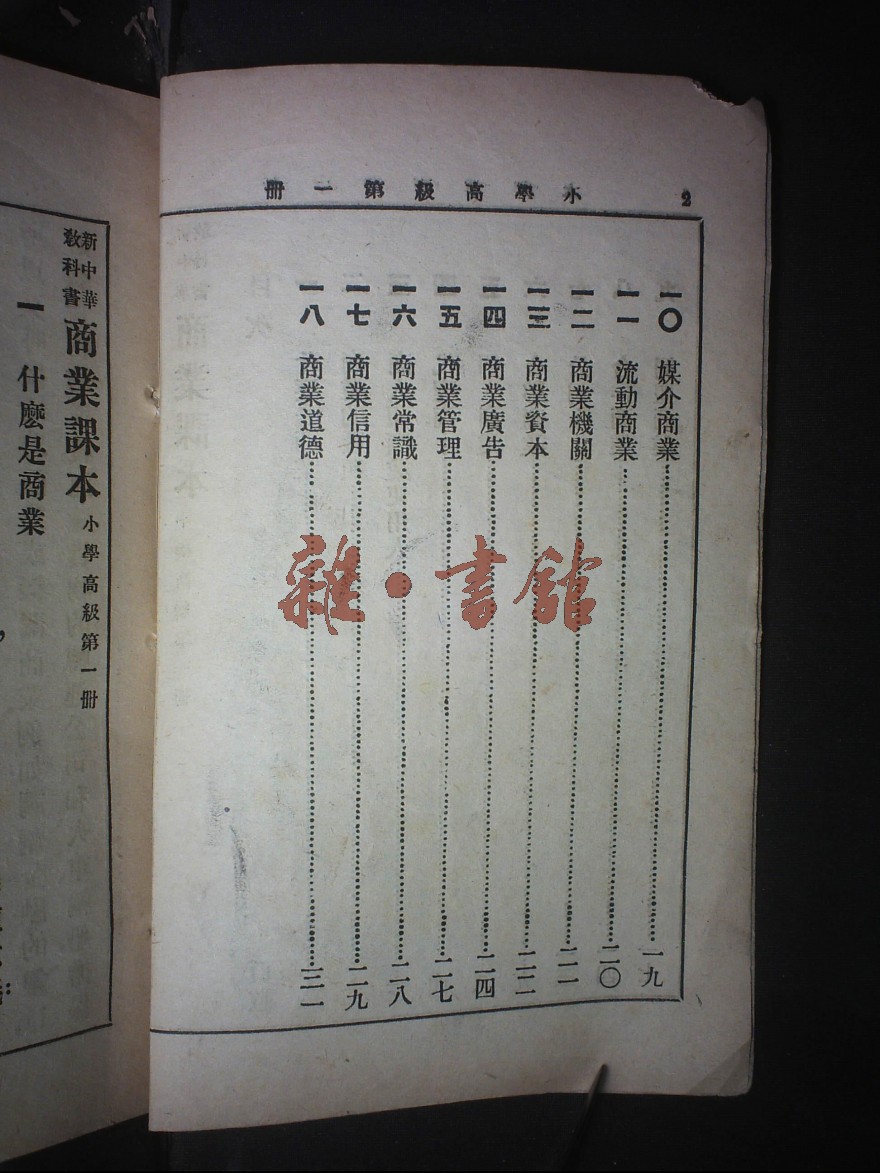 2
小學高級第一冊
一〇 媒介商業 一九
一一 流動商業 二〇
一二 商業機關 二一
一三 商業資本 二二
一四 商業廣告 二四
一五 商業管理 二七
一六 商業常識 二八
一七 商業信用 二九
一八 商業道德 三一
雜·書館
新中華
教科書
商業課本 小學高級第一冊
一 什麽是商業